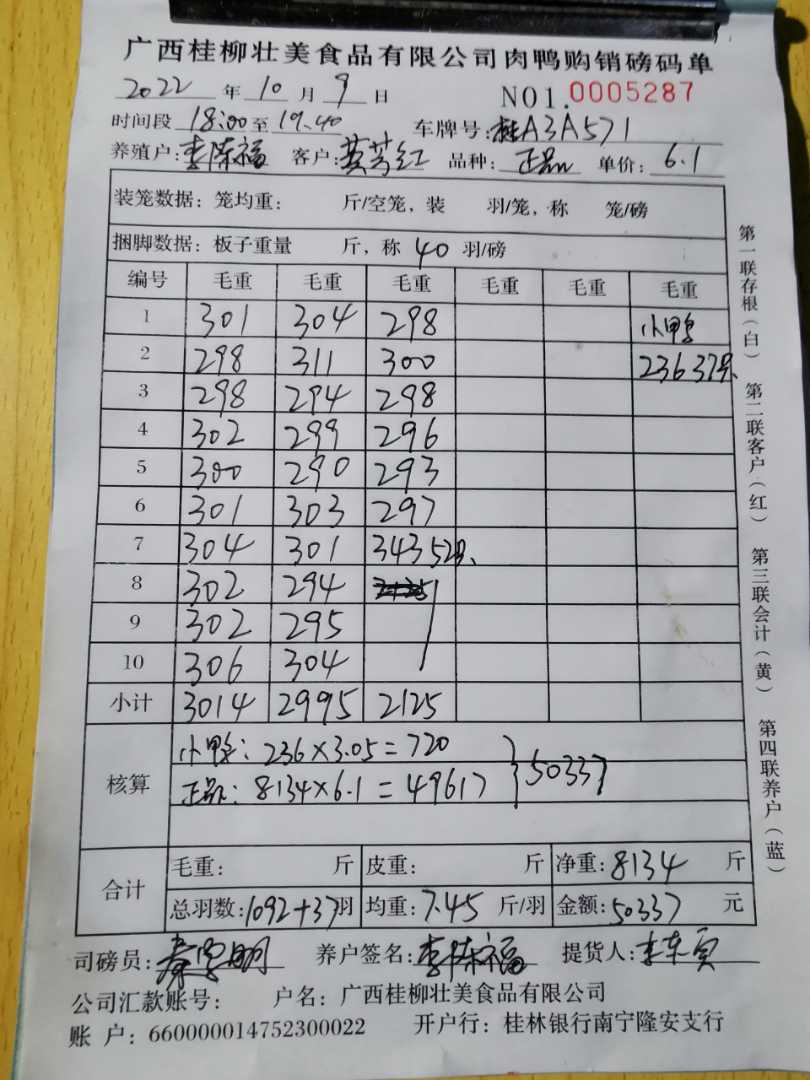 广西桂柳壮美食品有限公司肉鸭购销磅码单
2022 年 10 月 9 日 NO1.0005287
时间段 18:00 至 19:40 车牌号: 桂A3A571
养殖户: 李陈福 客户: 黄芳红 品种: 正品 单价: 6.1
装笼数据: 笼均重: 斤/空笼, 装 羽/笼, 称 笼/磅
捆脚数据: 板子重量 斤, 称 40 羽/磅
编号 毛重 毛重 毛重 毛重 毛重 毛重
1 301 304 298 小鸭
2 298 311 300 236 37只
3 298 294 298
4 302 299 296
5 300 290 293
6 301 303 297
7 304 301 343 52只
8 302 294
9 302 295
10 306 304
小计 3014 2995 2125
核算
小鸭: 236×3.05=720
正品: 8134×6.1=49617 } 50337
合计
毛重: 斤 皮重: 斤 净重: 8134 斤
总羽数: 1092+37 羽 均重: 7.45 斤/羽 金额: 50337 元
司磅员: 养户签名: 李陈福 提货人:
公司汇款账号: 户名: 广西桂柳壮美食品有限公司
账 户: 660000014752300022 开户行: 桂林银行南宁隆安支行
第一联存根(白) 第二联客户(红) 第三联会计(黄) 第四联养户(蓝)